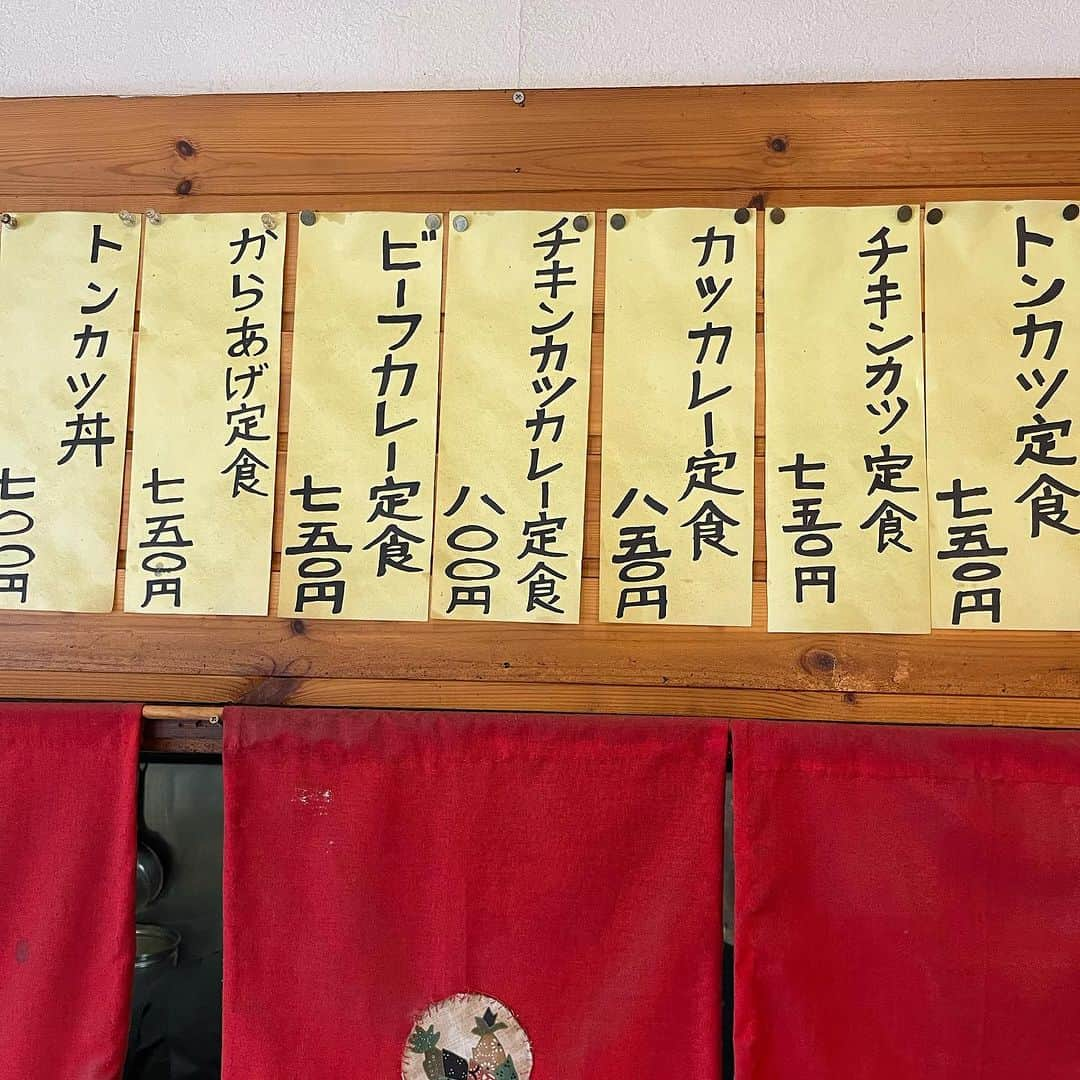 トンカツ定食
七五〇円
チキンカツ定食
七五〇円
カツカレー定食
八五〇円
チキンカツカレー定食
八〇〇円
ビーフカレー定食
七五〇円
からあげ定食
七五〇円
トンカツ丼
七〇〇円